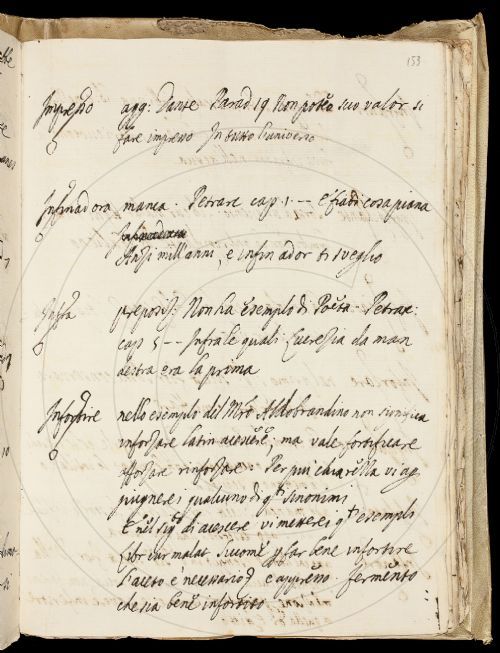 153
Impresso agg: Dante Parad 19 Non poteo suo valor si
fare impresso In tutto l'universo
Infinadora manca. Petrarc cap 1 -- E fia di cosa piana
Anzi mill'anni, e infin ador ti sveglio
Infra preposiz: Non ha esempio di Poeta. Petrar:
cap 5 -- Infra le quali Lucrezia da man
destra era la prima
nello esempio del Mro Aldobrandino non significa
inforzare latin acescere; ma vale fortificare
afforzare rinforzare. Per piu chiarezza vi ag
piugnerei qualcuno di qti sinonimi
E nel sigto di acescere vi metterei qti esempli
Libr cur malat Siccome p far bene infortire
l'aceto è necessario e appresso fermento
che sia bene infortito